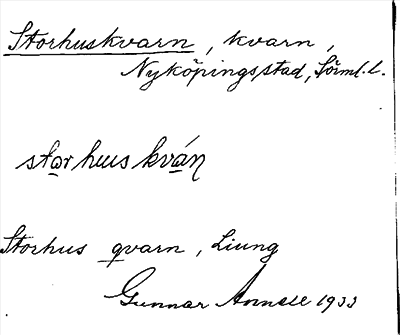 Storhuskvarn, kvarn,
Nyköpings stad, Sörml. l.
storhuus kván
Storhus qvarn, Liung
Gunnar Annell 1933